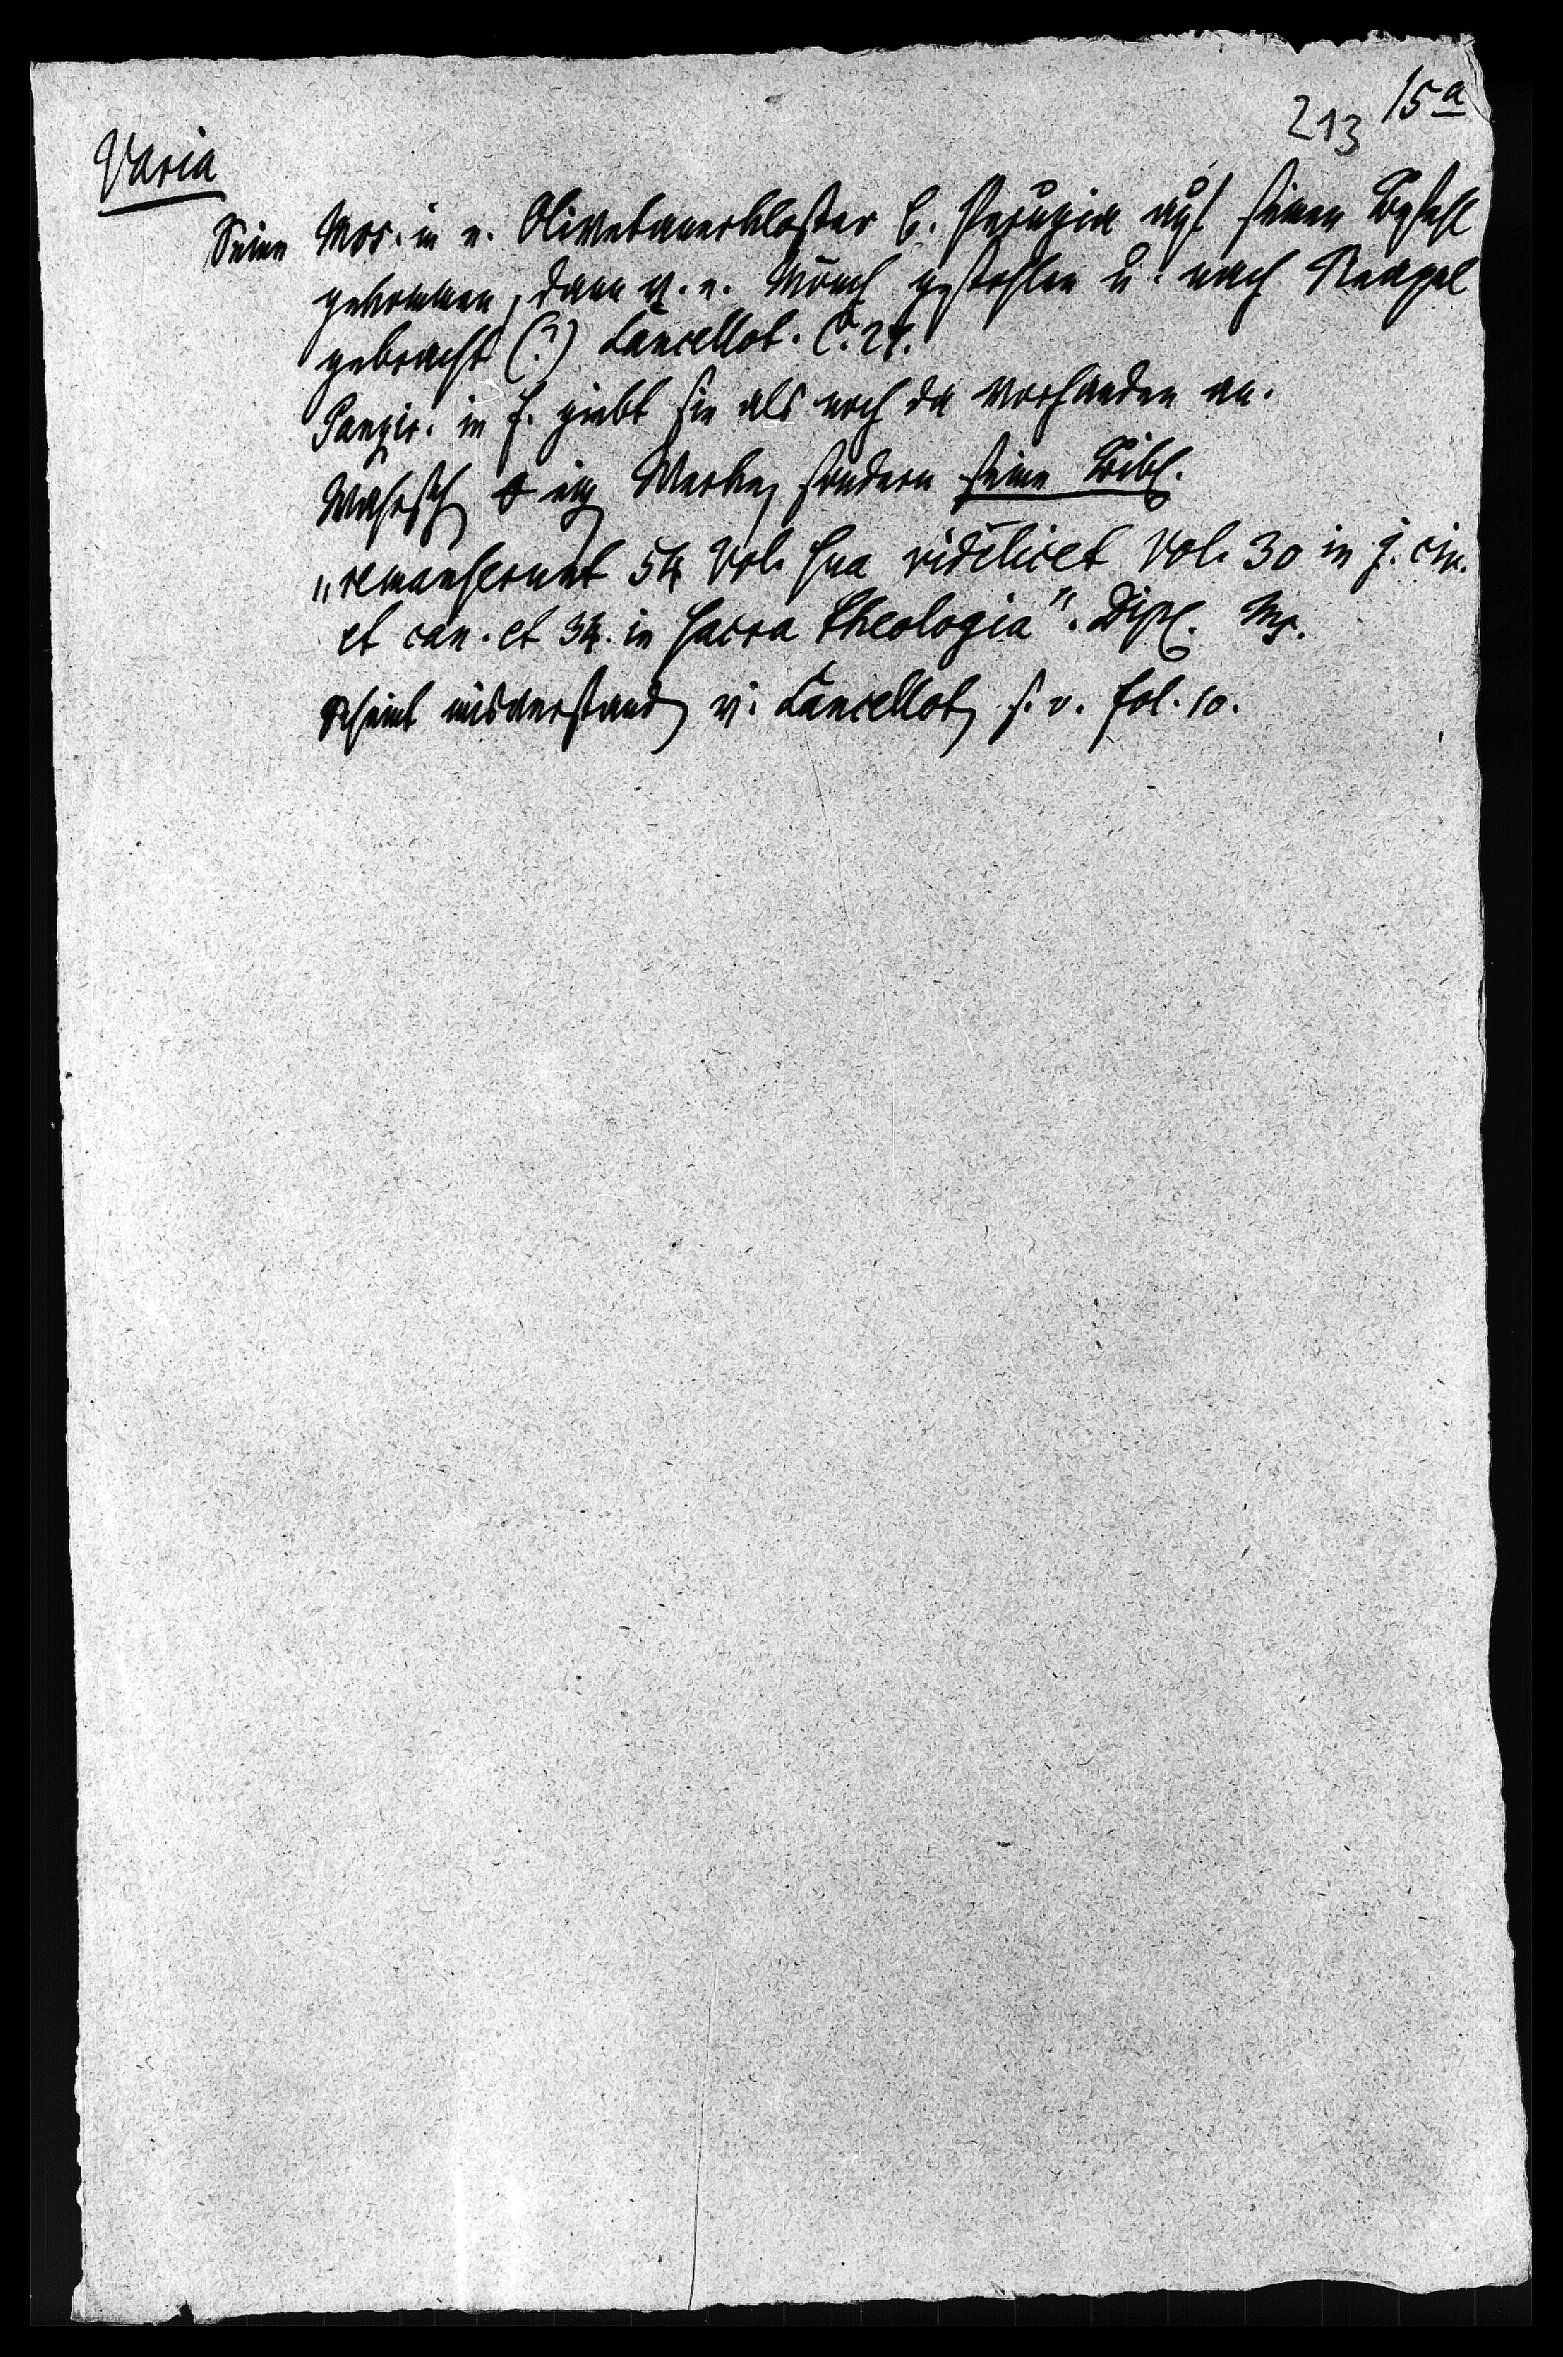 213 15a
Varia
Seine Mss. in e. Olivetanerkloster b. Perugia auf seinen Befehl
gekommen, dann v. e. Mönch gestohlen u. nach Neapel
gebracht (?) Lancellot. C. 24.
Panzir. in f. giebt sie als noch da vorhanden an.
Wahrsch. eig. Werke, sondern seine Bibl.
„remanserunt 54 Vol. sua videlicet Vol. 30 in j. civ.
et can. et 34. in sacra theologia". Dipl. Ms.
scheint misverstand. v. Lancellot, s. v. fol. 10.